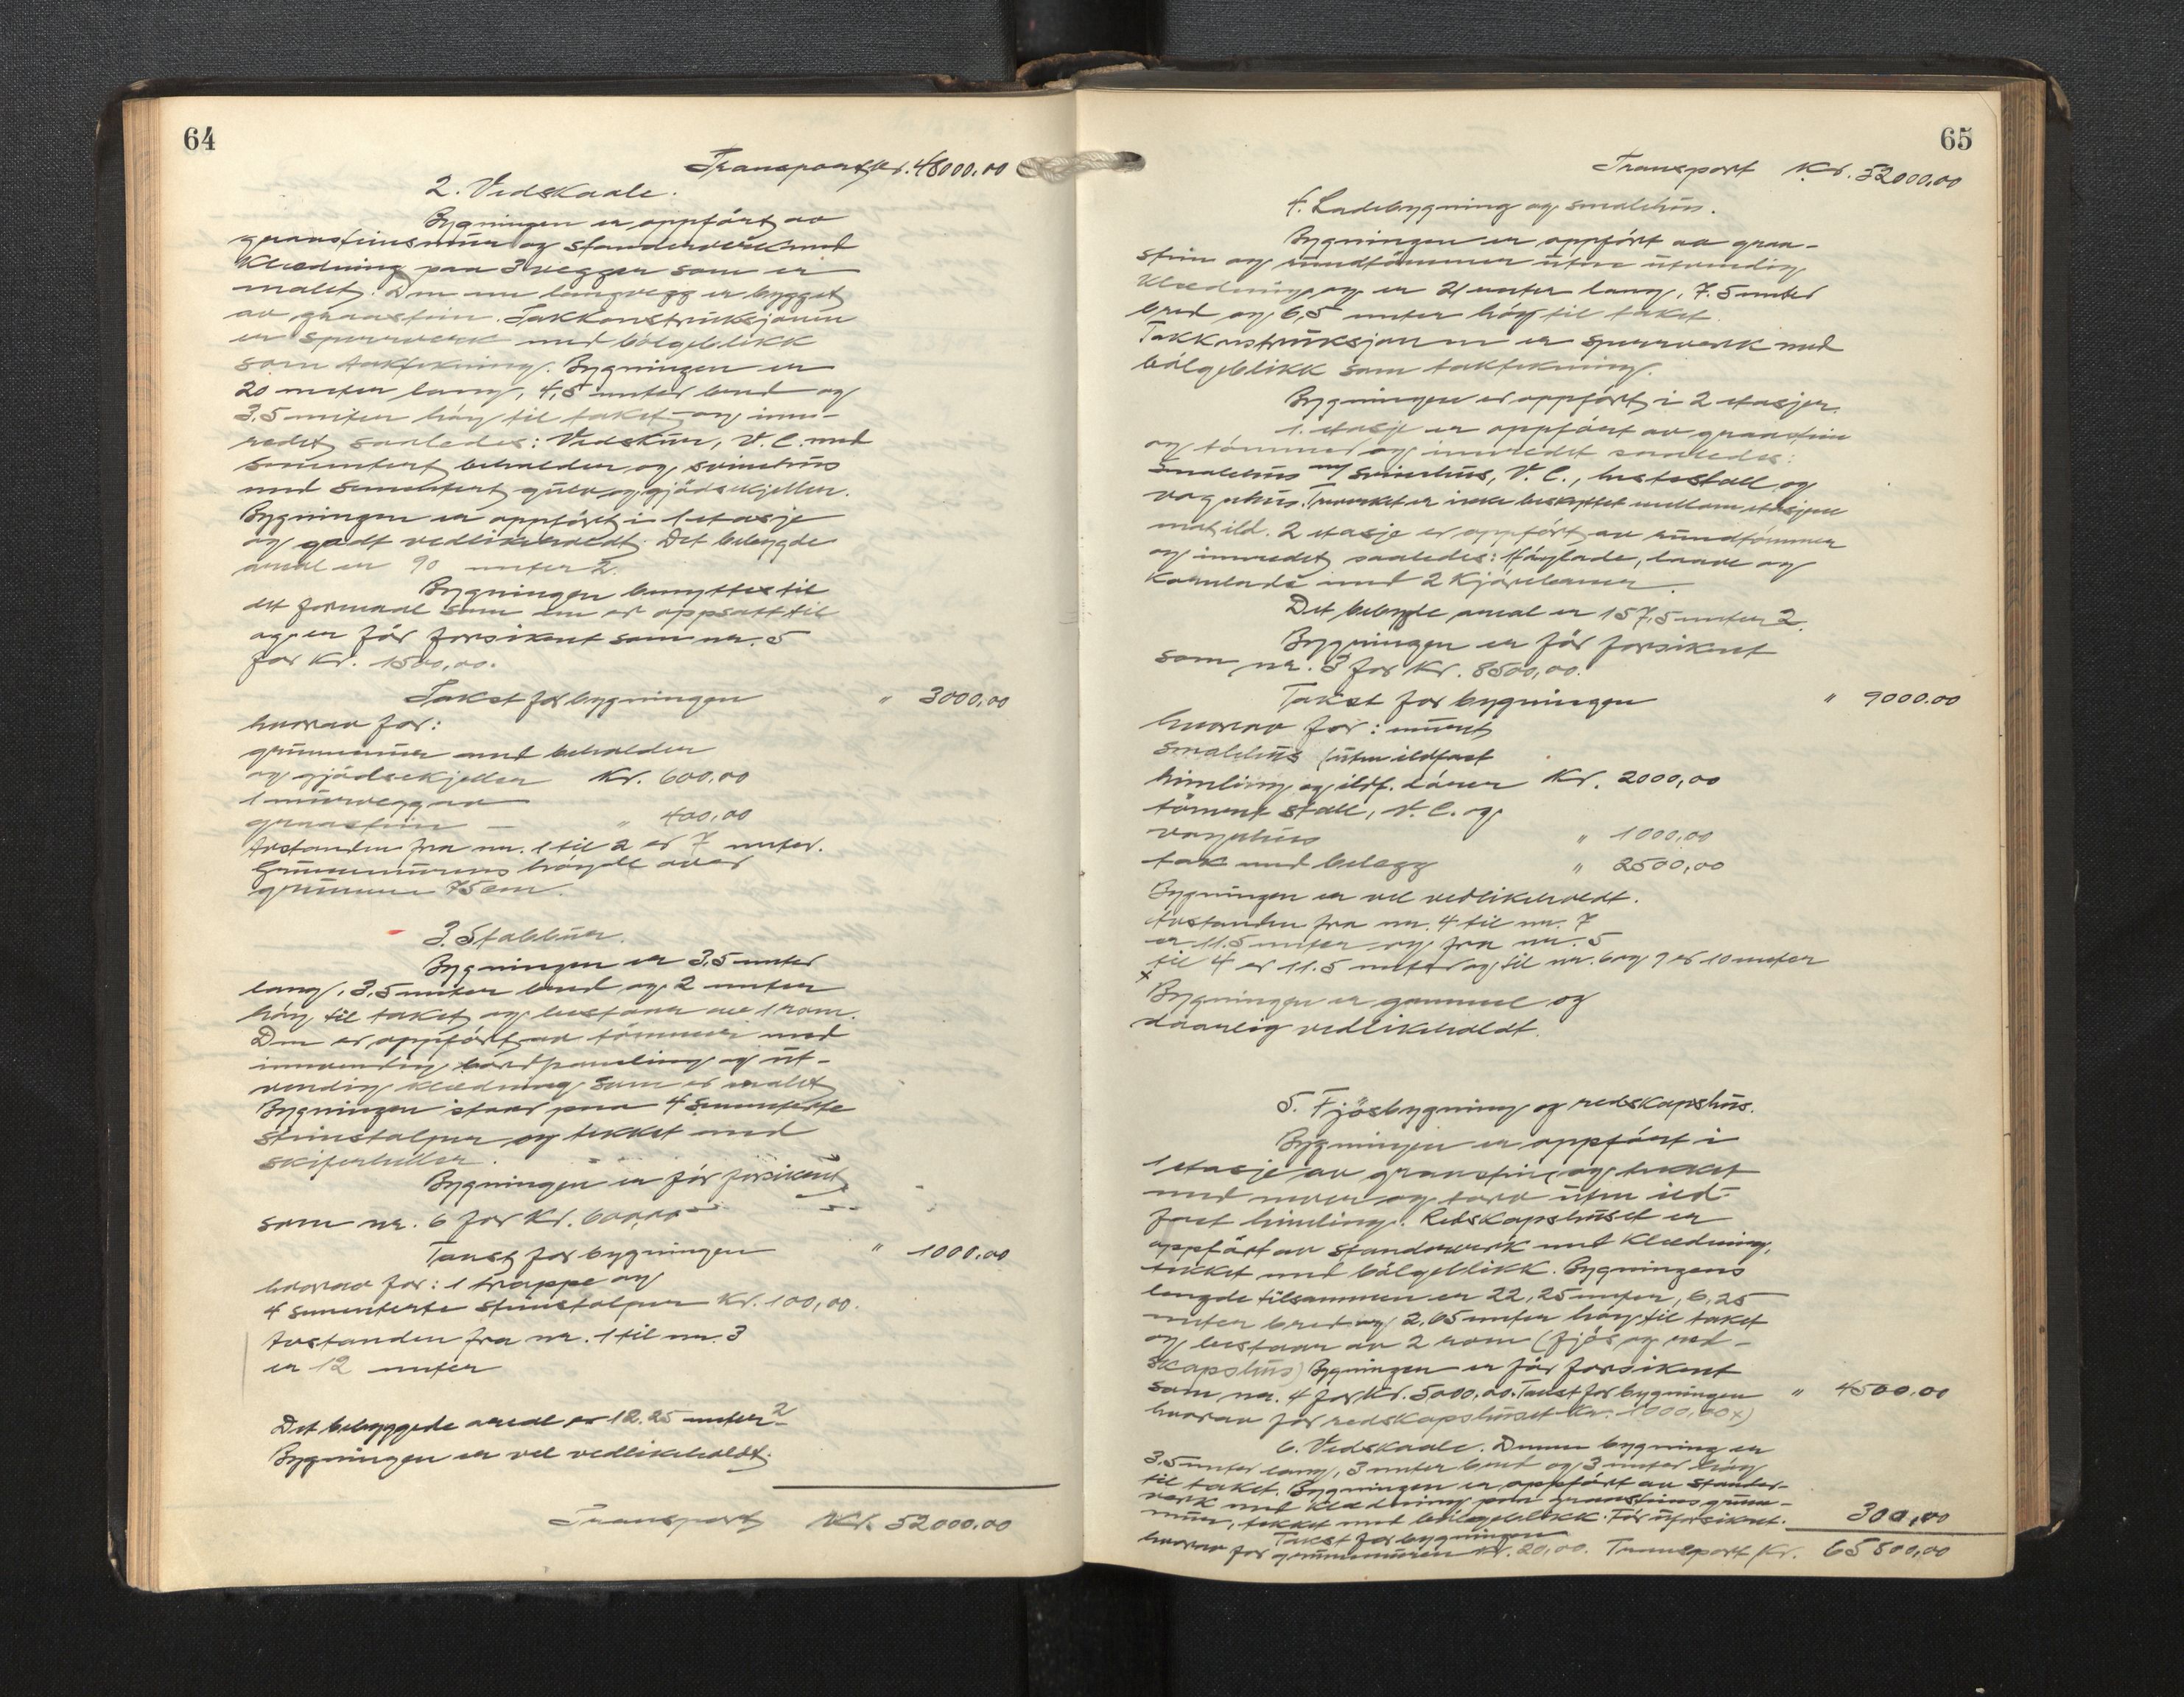 64
Transport Kr. 48000,00
2. Vedskaale.
Bygningen er oppfört av
graasteinsmur og standerverk med
Klædning paa 3 vegger som er
malet. Den ene langvegg er bygget
av graastein. Takkonstruksjonen
er sperrverk med bölgeblikk
som taktekning. Bygningen er
20 meter lang, 4,5 meter bred og
3,5 meter höy til taket og inn-
redet saaledes: Vedskur, V.C. med
sementert beholder og svinehus
med sementert gulv og gjödselkjeller.
Bygningen er oppfört i 1 etasje
og godt vedlikeholdt. Det bebygde
areal er 90 meter 2.
Bygningen benyttes til
det formaal som den er oppsatt til
og er för forsikret som nr. 5
for Kr. 1500,00.
Takst for bygningen " 3000,00
hvorav for:
grunnmur med beholder
og gjödselkjeller Kr. 600,00
1 murvegg av
graastein — " 400,00
Avstanden fra nr. 1 til 2 er 7 meter.
Grunnmurens höyde over
grunnen 75 cm.
3. Stabbur.
Bygningen er 3,5 meter
lang, 3,5 meter bred og 2 meter
höy til taket og bestaar av 1 rom.
Den er oppfört av tömmer med
innvendig bordpaneling og ut-
vendig klædning som er malet
Bygningen staar paa 4 sementerte
steinstolper og tekket med
skiferheller.
Bygningen er för forsikret
som nr. 6 for Kr. 600,00
Takst for bygningen " 1000,00
hvorav for: 1 trappe og
4 sementerte steinstolper Kr. 100,00.
Avstanden fra nr. 1 til nr. 3
er 12 meter
Det bebyggede areal er 12.25 meter 2
Bygningen er vel vedlikeholdt.
Transport Kr. 52000,00
65
Transport Kr. 52000,00
4. Ladebygning og smalehus.
Bygningen er oppfört av graa-
stein og rundtömmer uten utvendig
Klædning og er 21 meter lang, 7.5 meter
bred og 6,5 meter höy til taket.
Takkonstruksjonen er sperrverk med
bölgeblikk som taktekning.
Bygningen er oppfört i 2 etasjer.
1. etasje er oppfört av graastein
og tömmer og innredet saaledes:
Smalehus og svinehus, V.C., hestestall og
vognhus. Treverket er ikke beskyttet mellom etasjene
mot ild. 2 etasje er oppfört av rundtömmer
og innredet saaledes: Höylade, laave og
Kornlade med 2 Kjörebruer.
Det bebygde areal er 157,5 meter 2.
Bygningen er för forsikret
som nr. 3 for Kr. 8500,00.
Takst for bygningen " 9000.00
hvorav for: muret
smalehus (uten ildfast
himling og ildf. dörer Kr. 2000,00
tömret stall, V.C. og
vognhus " 1000,00
tak med belegg " 2500,00
Bygningen er vel vedlikeholdt.
Avstanden fra nr. 4 til nr. 7
er 11.5 meter og fra nr. 5
til 4 er 11.5 meter og til nr. 6 og 7 er 10 meter
x
Bygningen er gammel og
daarlig vedlikeholdt.
5. Fjösbygning og redskapshus.
Bygningen er oppfört i
1 etasje av graastein og tekket
med never og torv uten ild-
fast himling. Redskapshuset er
oppfört av standerverk med Klædning,
tekket med bölgeblikk. Bygningens
lengde tilsammen er 22,25 meter, 6,25
meter bred og 2,65 meter höy til taket
og bestaar av 2 rom (fjös og red-
skapshus) Bygningen er för forsikret
som nr. 4 for Kr. 5000,00. Takst for bygningen " 4500,00
hvorav for redskapshuset Kr. 1000,00 x)
6. Vedskaale. Denne bygning er
3.5 meter lang, 3 meter bred og 3 meter höy
til taket. Bygningen er oppfört av stander-
verk med Klædning paa graasteins grunn-
mur, tekket med bölgeblikk. För uforsikret.
Takst for bygningen 300,00
hvorav for grunnmuren Kr. 20,00. Transport Kr. 65800,00